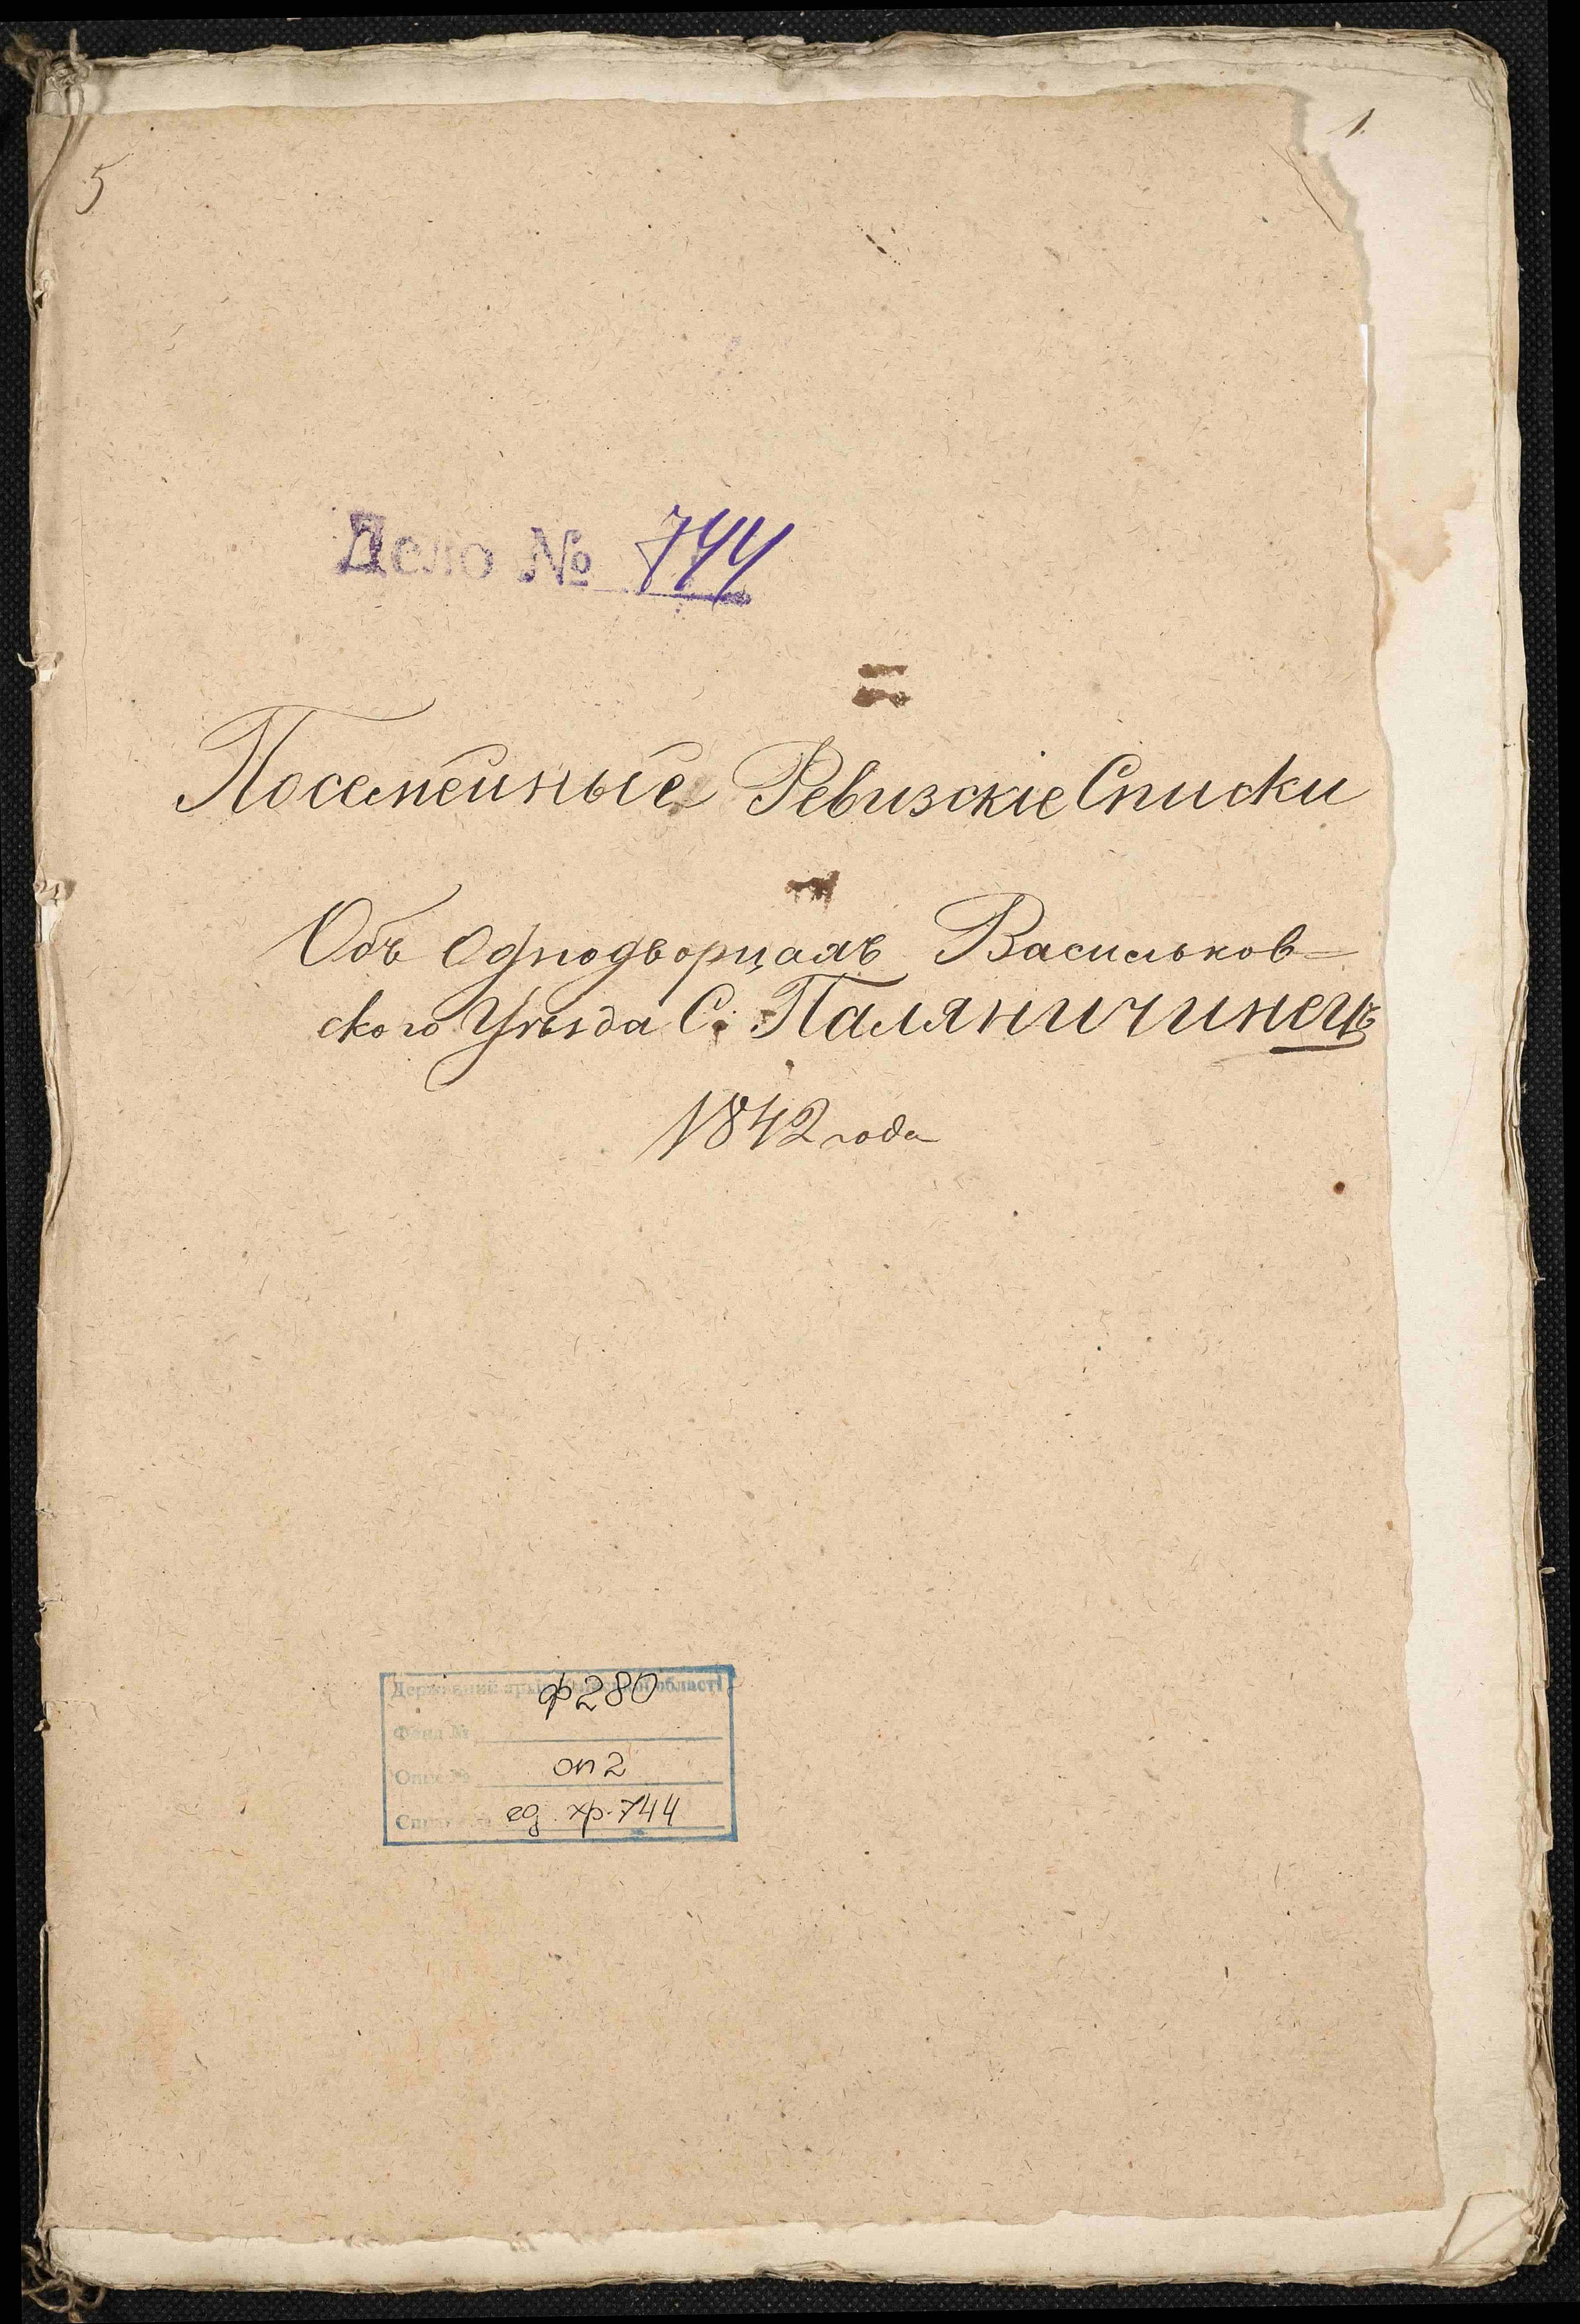 1.
5
Дело № 744
Посемейные Ревизскіе Списки
Объ Однодворцахъ Васильков=
ского Уѣзда С. Паляничинецъ
1842 года
Державний архів Київської області
ф 280
Фонд №
Опис № оп 2
Справа № ед. хр. 744